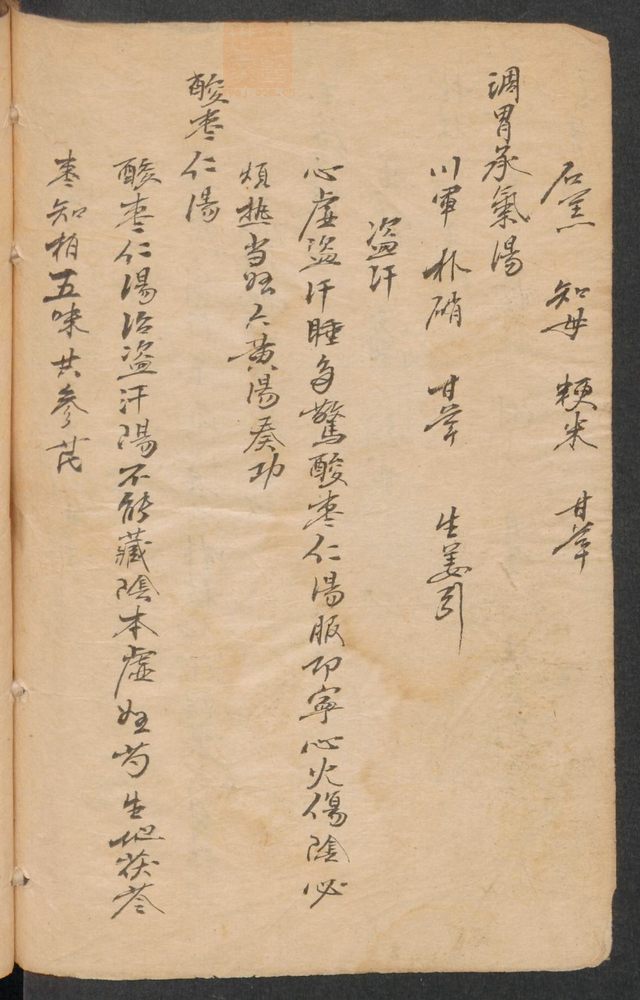 石羔 知母 粳米 甘草
調胃承氣湯
川軍 朴硝 甘草 生姜引
盜汗
心虛盜汗睡多驚酸枣仁湯服即寧心火傷陰必
煩熱当归六黃湯奏功
酸枣仁湯
酸枣仁湯治盜汗陽不能藏陰本虛归芍生地茯苓
枣知柏五味共參芪